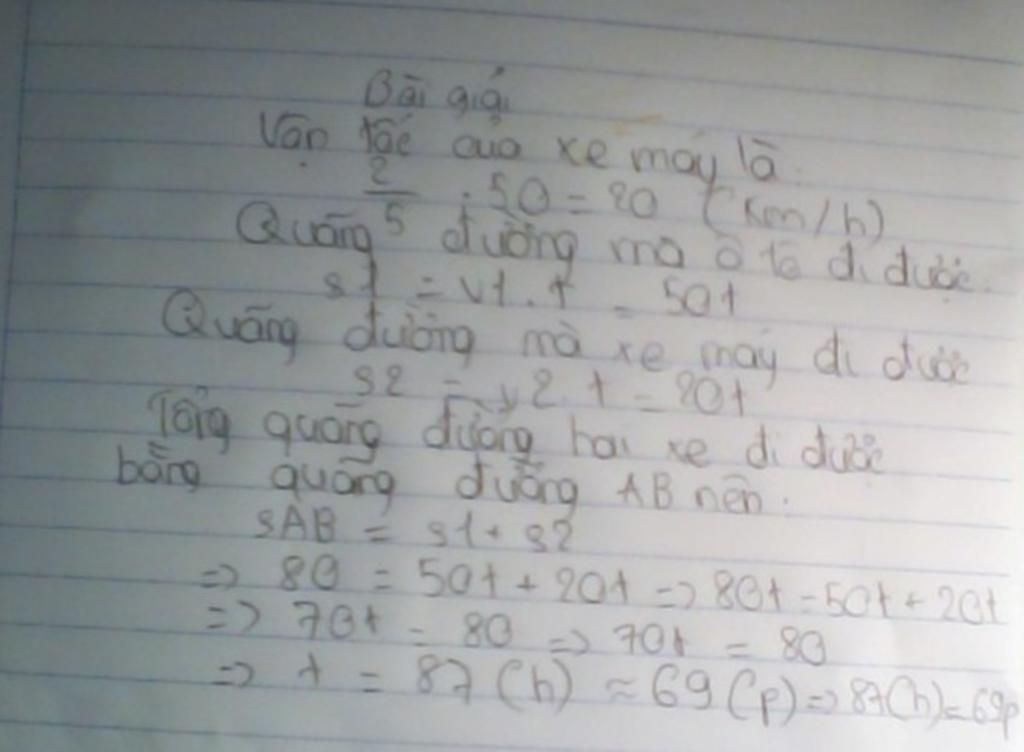 Bài giải
Vận tốc của xe máy là.
2/5 . 50 = 20 (km/h)
Quãng đường mà ô tô đi được.
s1 = v1.t = 50t
Quãng đường mà xe máy đi được
s2 = v2.t = 20t
Tổng quãng đường hai xe đi được
bằng quãng đường AB nên.
sAB = s1 + s2
=> 80 = 50t + 20t => 80t = 50t + 20t
=> 70t = 80 => 70t = 80
=> t = 87 (h) ≈ 69 (p) => 87(h) = 69p